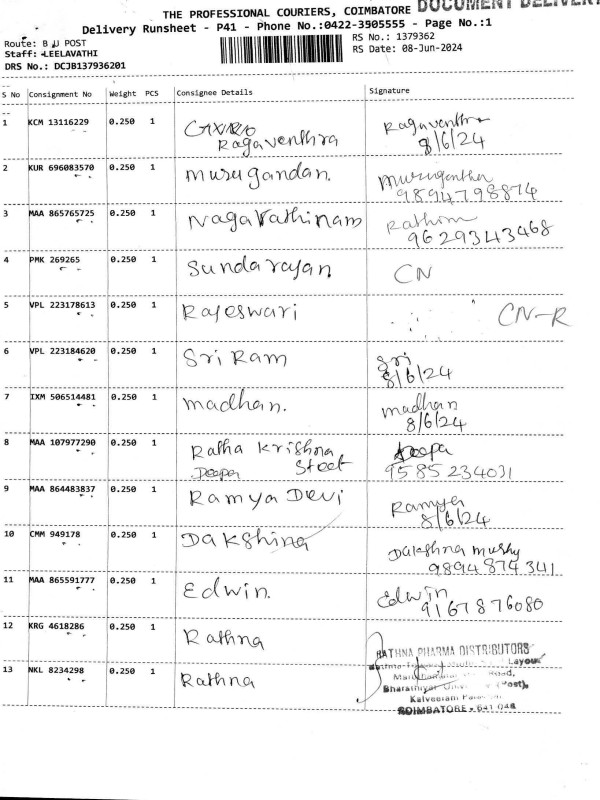 DOCUMENT DELIVERY
THE PROFESSIONAL COURIERS, COIMBATORE
Delivery Runsheet - P41 - Phone No.:0422-3905555 - Page No.:1
Route: B U POST
RS No.: 1379362
Staff: LEELAVATHI
RS Date: 08-Jun-2024
DRS No.: DCJB137936201
S No Consignment No Weight PCS Consignee Details Signature
1 KCM 13116229 0.250 1 Ragaventhra Ragaventhra
8/6/24
2 KUR 696083570 0.250 1 murugandan. muruganthan
9894798874
3 MAA 865765725 0.250 1 Nagarathinam Rathinam
9629343468
4 PMK 269265 0.250 1 Sundarajan CN
5 VPL 223178613 0.250 1 Rajeswari CN-R
6 VPL 223184620 0.250 1 Sri Ram Sri
8/6/24
7 IXM 506514481 0.250 1 madhan. madhan
8/6/24
8 MAA 107977290 0.250 1 Ratha Krishna Deepa
Deepa Street 9585234031
9 MAA 864483837 0.250 1 Ramya Devi Ramya
8/6/24
10 CMM 949178 0.250 1 Dakshina Dakshna
9894874341
11 MAA 865591777 0.250 1 Edwin. Edwin
9167876080
12 KRG 4618286 0.250 1 Rathna
RATHNA PHARMA DISTRIBUTORS
Layout
13 NKL 8234298 0.250 1 Rathna
Road,
Bharathiyar (Post),
Kalveeram
COIMBATORE - 641 046